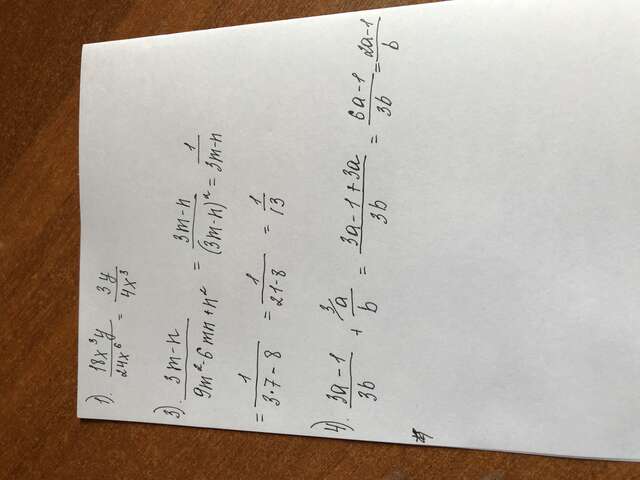 1). 18x³y/24x⁶ = 3y/4x³
3). 3m-n/9m²-6mn+n² = 3m-n/(3m-n)² = 1/3m-n
= 1/3·7-8 = 1/21-8 = 1/13
4). 3a-1/3b + ³⁾a/b = 3a-1+3a/3b = 6a-1/3b = 2a-1/b